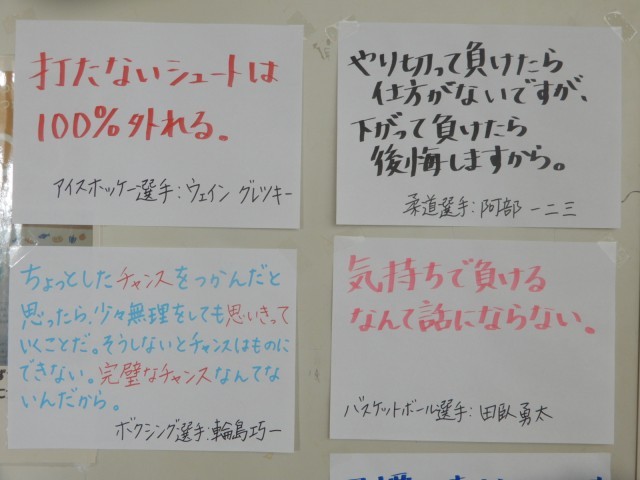 打たないシュートは
100%外れる。
アイスホッケー選手:ウェイン グレツキー
やり切って負けたら
仕方がないですが、
下がって負けたら
後悔しますから。
柔道選手:阿部 一二三
ちょっとしたチャンスをつかんだと
思ったら、少々無理をしても思いきって
いくことだ。そうしないとチャンスはものに
できない。完璧なチャンスなんてな
いんだから。
ボクシング選手:輪島功一
気持ちで負ける
なんて話にならない。
バスケットボール選手:田臥勇太